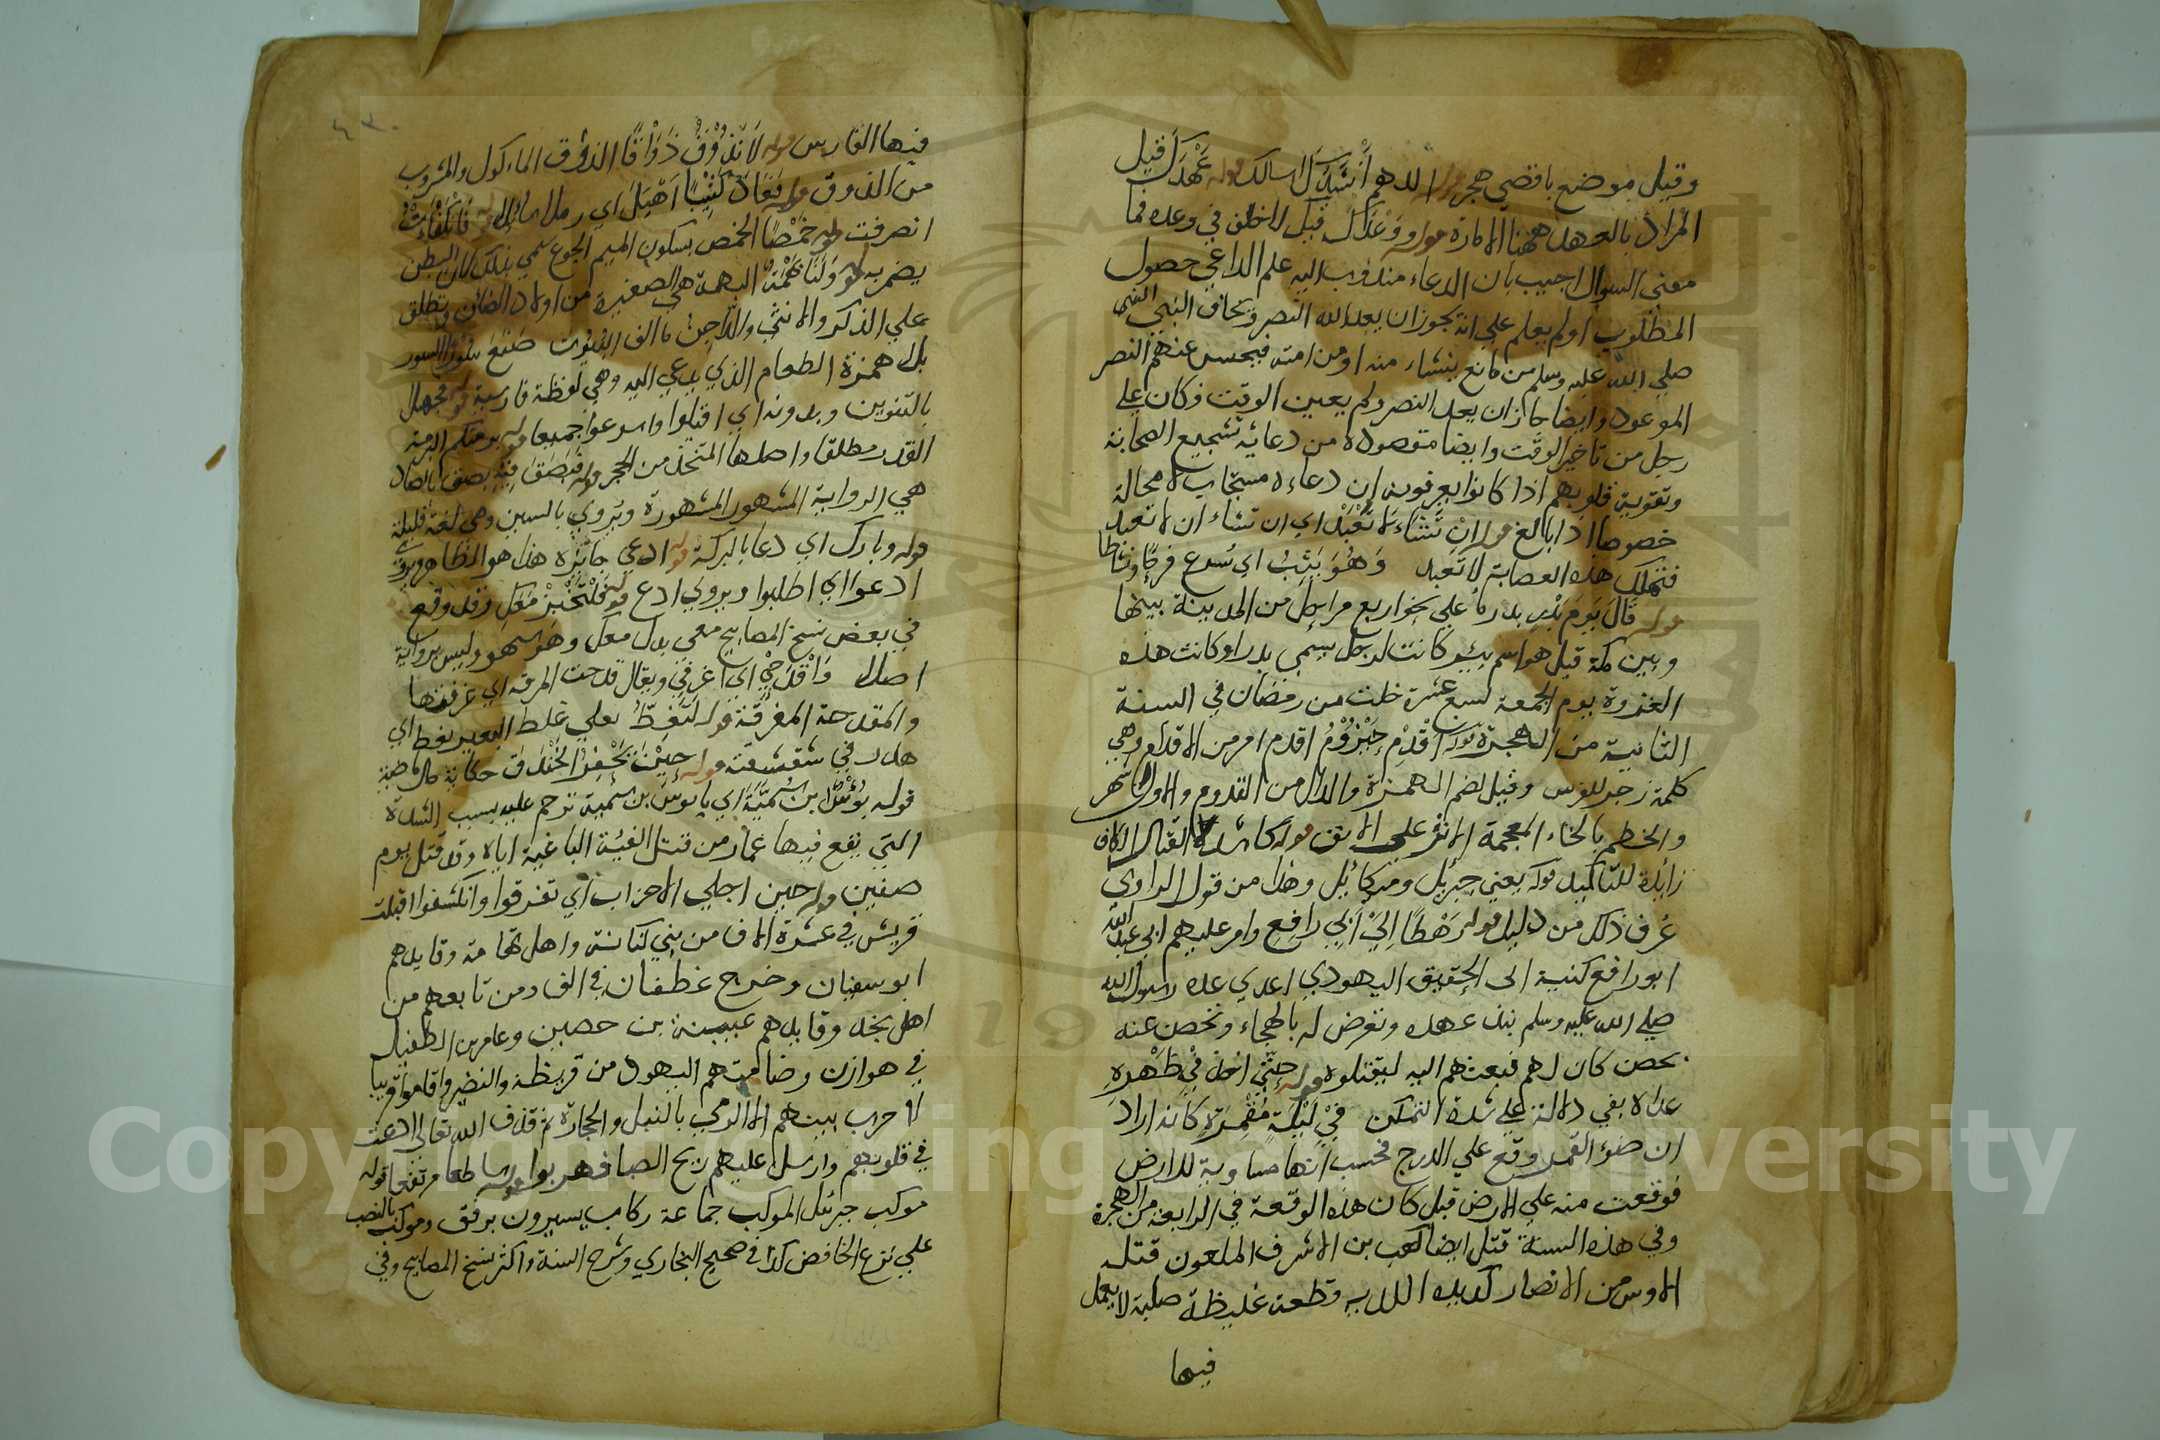 وقيل موضع باقصي هجر قوله اللهم أَنْشُدُكَ اسالك قوله عَهْدَكَ قيل
المراد بالعهد ههنا الامارة قوله وَوَعْدَكَ قيل لا خلف في وعده فما
معنى السوال اجيب بان الدعاء مندوب اليه علم الداعي حصول
المطلوب او لم يعلم علي انه يجوز ان يعد الله النصر ويخاف النبي
صلي الله عليه وسلم من مانع ينشاء منه او من امته فيحبس عنهم النصر
الموعود وايضا جاز ان يعد النصر ولم يعين الوقت فكان علي
وجل من تاخير الوقت وايضا مقصوده من دعائه تشجيع الصحابة
وتقوية قلوبهم اذا كانوا يعرفون ان دعاءه مستجاب لا محالة
خصوصا اذا بالغ قوله اِنْ تَشَاءَ لَا تُعْبَدْ اي ان تشاء ان لا تعبد
فتهلك هذه العصابة لا تعبد وَهُوَ يَثِبُ اي يُسرع فرحًا ونشاطا
قوله قَالَ يَوْمَ بَدْرٍ بدر ماء علي نحو اربع مراحل من المدينة بينها
وبين مكة قيل هو اسم بير كانت لرجل يسمي بدرا وكانت هذه
الغزوة يوم الجمعة لسبع عشرة خلت من رمضان في السنة
الثانية من الهجرة قوله اَقْدِمْ حَيْزُوْمُ اقدم امر من الاقدام وهي
كلمة زجر للفرس وقيل لضم الهمزة والدال من القدوم والاول اشهر
والخطم بالخاء المعجمة الاثر علي الانف قوله كاشد القتال الكاف
زايدة للتاكيد قوله يعني جبريل وميكائل وهذا من قول الراوي
عُرف ذلك من دليل قوله رَهْطًا اِلَيْ اَبِي رافِعٍ وامر عليهم ابي عبد الله
ابو رافع كنية ابي الحقيق اليهودي اعدي عدو رسول الله
صلي الله عليه وسلم نبذ عهده وتعرض له بالهجاء وتحصن عنه
بحصن كان لهم فبعثهم اليه ليقتلوه قوله حتّي اخذ فِيْ ظَهْرِهِ
عداه بفي دلالة علي شدة التمكن فِيْ لَيْلَةٍ مُقْمِرَةٍ كانه اراد
ان ضوء القمر وقع علي الدرج فحسب انها مساوية للارض
فوقعت منه علي الارض قيل كان هذه الوقعة في الرابعة من الهجرة
وفي هذه السنة قتل ايضا كعب بن الاشرف الملعون قتله
الاوس من الانصار كديه الكديه قطعة غليظة صلبة لا يعمل
فيها
فيها الفارس قوله لَا نَذُوْقُ ذَوَاقًا الذوق الماكول والمشروب
من الذوق قوله فَعَادَ كَثِيْبًا اَهْيَلَ اي رملا سائلا قوله فَانْكَفَأْتُ
انصرفت قوله خَمْصًا الخمص بسكون الميم الجوع سمي بذلك لان البطن
يضمر به قوله وَلَنَا بُهْمَةٌ البهمة هي الصغيرة من اولاد الضان وتطلق
علي الذكر والانثي والدّاجِنُ ما الف البيوت صَنَعَ سُوْرًا السور
بلا همزة الطعام الذي يدعي اليه وهي لفظة فارسية قوله فحيهلا
بالتنوين وبدونه اي اقبلوا واسرعوا جميعا قوله برمتكم البرمة
القدر مطلقا واصلها المتخذ من الحجر قوله فَبَصَقَ فِيْهِ بصق بالصاد
هي الرواية المشهور المشهورة ويُروي بالسين وهي لغة قليلة
قوله وبارك اي دعا بالبركة قوله ادعي خابزة هذا هو الظاهر ويروي
ادعوا اي اطلبوا ويروي ادع قوله فَلْتَخْبِزْ مَعَكِ وقد وقع
في بعض نسخ المصابيح معي بدل معك وهو سهو وليس برواية
اصلا وَاقْدَحِيْ اي اغرفي ويقال قدحت المرقة اي غرفتها
والمقدحة المغرفة قوله لَتَغِطُّ تغلي غلط البعير يغط اي
هدر في شقشقته قوله حِيْنَ يَحْفِرُ الْخَنْدَقَ حكاية حال ماضية
قوله بُؤْسَ بن سُميَّةَ اي يا بوس بن سمية ترحم عليه بسبب الشدة
التي يقع فيها عمار من قتل الفئية الباغية اياه وقد قتل يوم
صفين قوله حين اجلي الاحزاب اي تفرقوا وانكشفوا اقبلت
قريش في عشرة الاف من بني كنانة واهل تهامة وقايدهم
ابو سفيان وخرج غطفان في الف ومن تابعهم من
اهل نجد وقايدهم عيينة بن حصين وعامر بن الطفيل
في هوازن وضامتهم اليهود من قريظة والنضير واقاموا قريبا
لا حرب بينهم الا الرمي بالنبل والحجارة ثم قذف الله تعالى الرعب
في قلوبهم وارسل عليهم ريح الصبا فهربوا قوله ساطعا مرتفعا قوله
موكب جبرئيل الموكب جماعة ركاب يسيرون برفق وموكب بالنصب
علي نزع الخافض كذا في صحيح البخاري وشرح السنة واكثر نسخ المصابيح وفي
Copyright © King Saud University